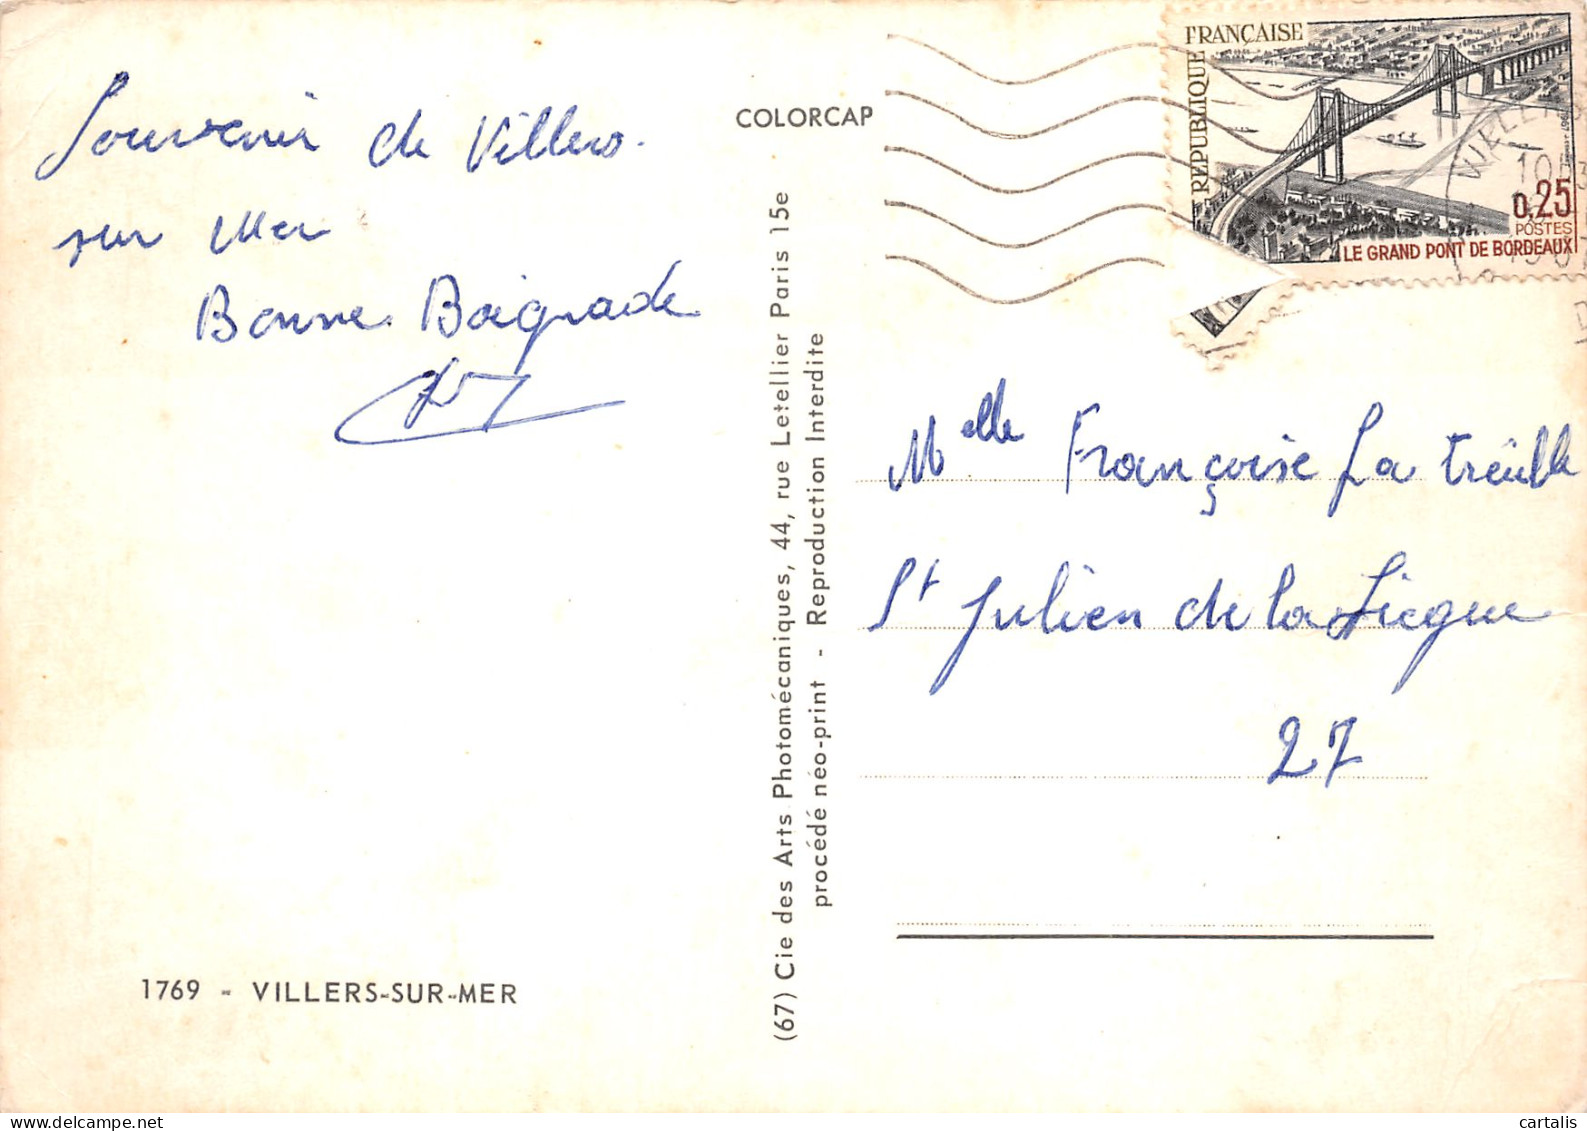 Souvenir de Villers.
sur Mer
Bonne Baignade
1769 - VILLERS-SUR-MER
COLORCAP
(67) Cie des Arts Photomécaniques, 44, rue Letellier Paris 15e
procédé néo-print - Reproduction Interdite
RÉPUBLIQUE
FRANÇAISE
0,25
POSTES
LE GRAND PONT DE BORDEAUX
Melle Françoise La
St Julien de la Liegue
27
cartalis